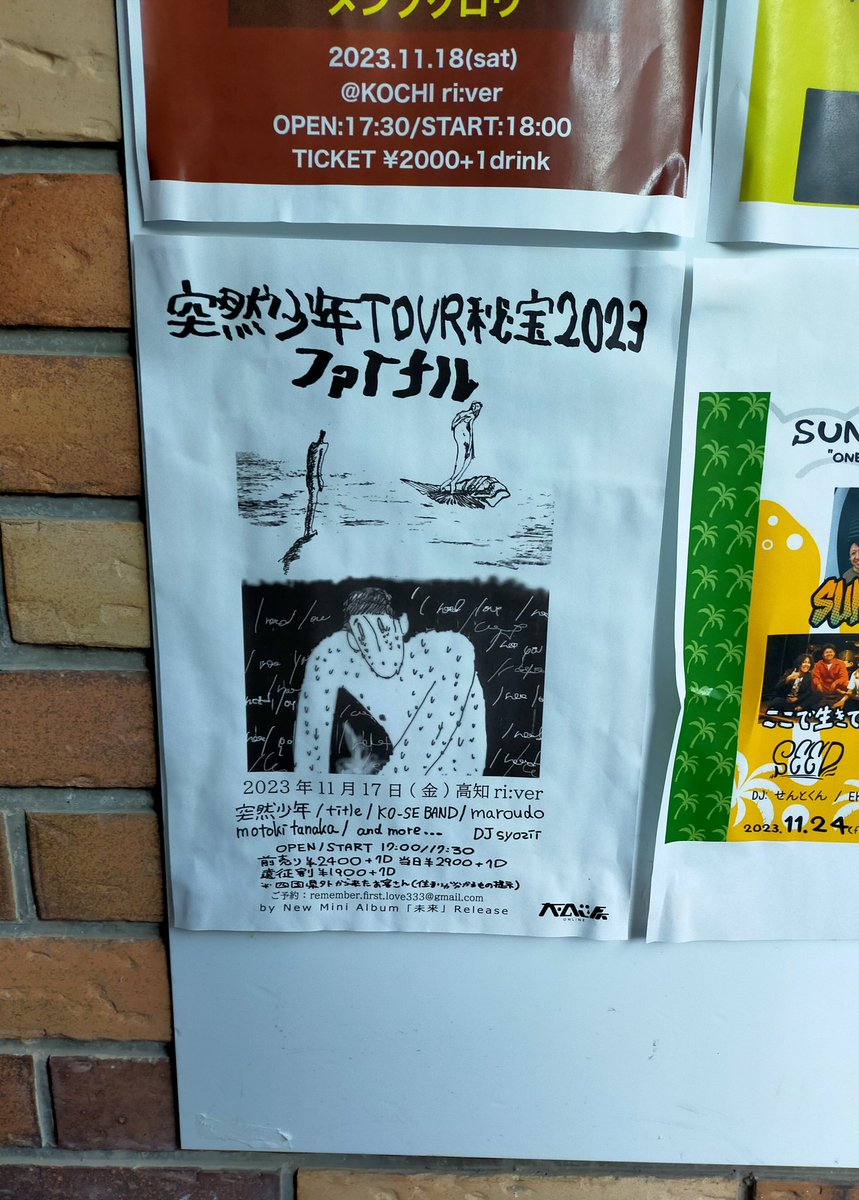 メンフクロウ
2023.11.18(sat)
@KOCHI ri:ver
OPEN:17:30/START:18:00
TICKET ¥2000+1drink
突然少年TOUR秘宝2023
ファイナル
2023年11月17日(金)高知 ri:ver
突然少年/title/KO-SE BAND/maroudo
motoki tanaka/ and more... DJ syozii
OPEN/START 17:00/17:30
前売り¥2400+1D 当日¥2900+1D
遠征割¥1900+1D
*四国県外から来たお客さん(住まいが分かるもの提示)
ご予約:remember.first.love333@gmail.com
by New Mini Album「未来」Release
ONLINE
SUN
"ONE
SUN
ここで生きて
SEED
DJ: せんとくん /
2023. 11.24